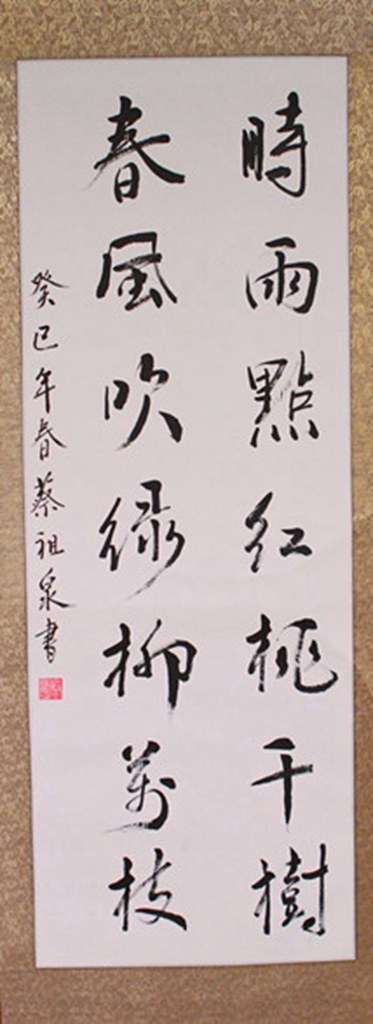 時雨點紅桃千樹
春風吹绿柳萬枝
癸巳年春蔡祖泉書